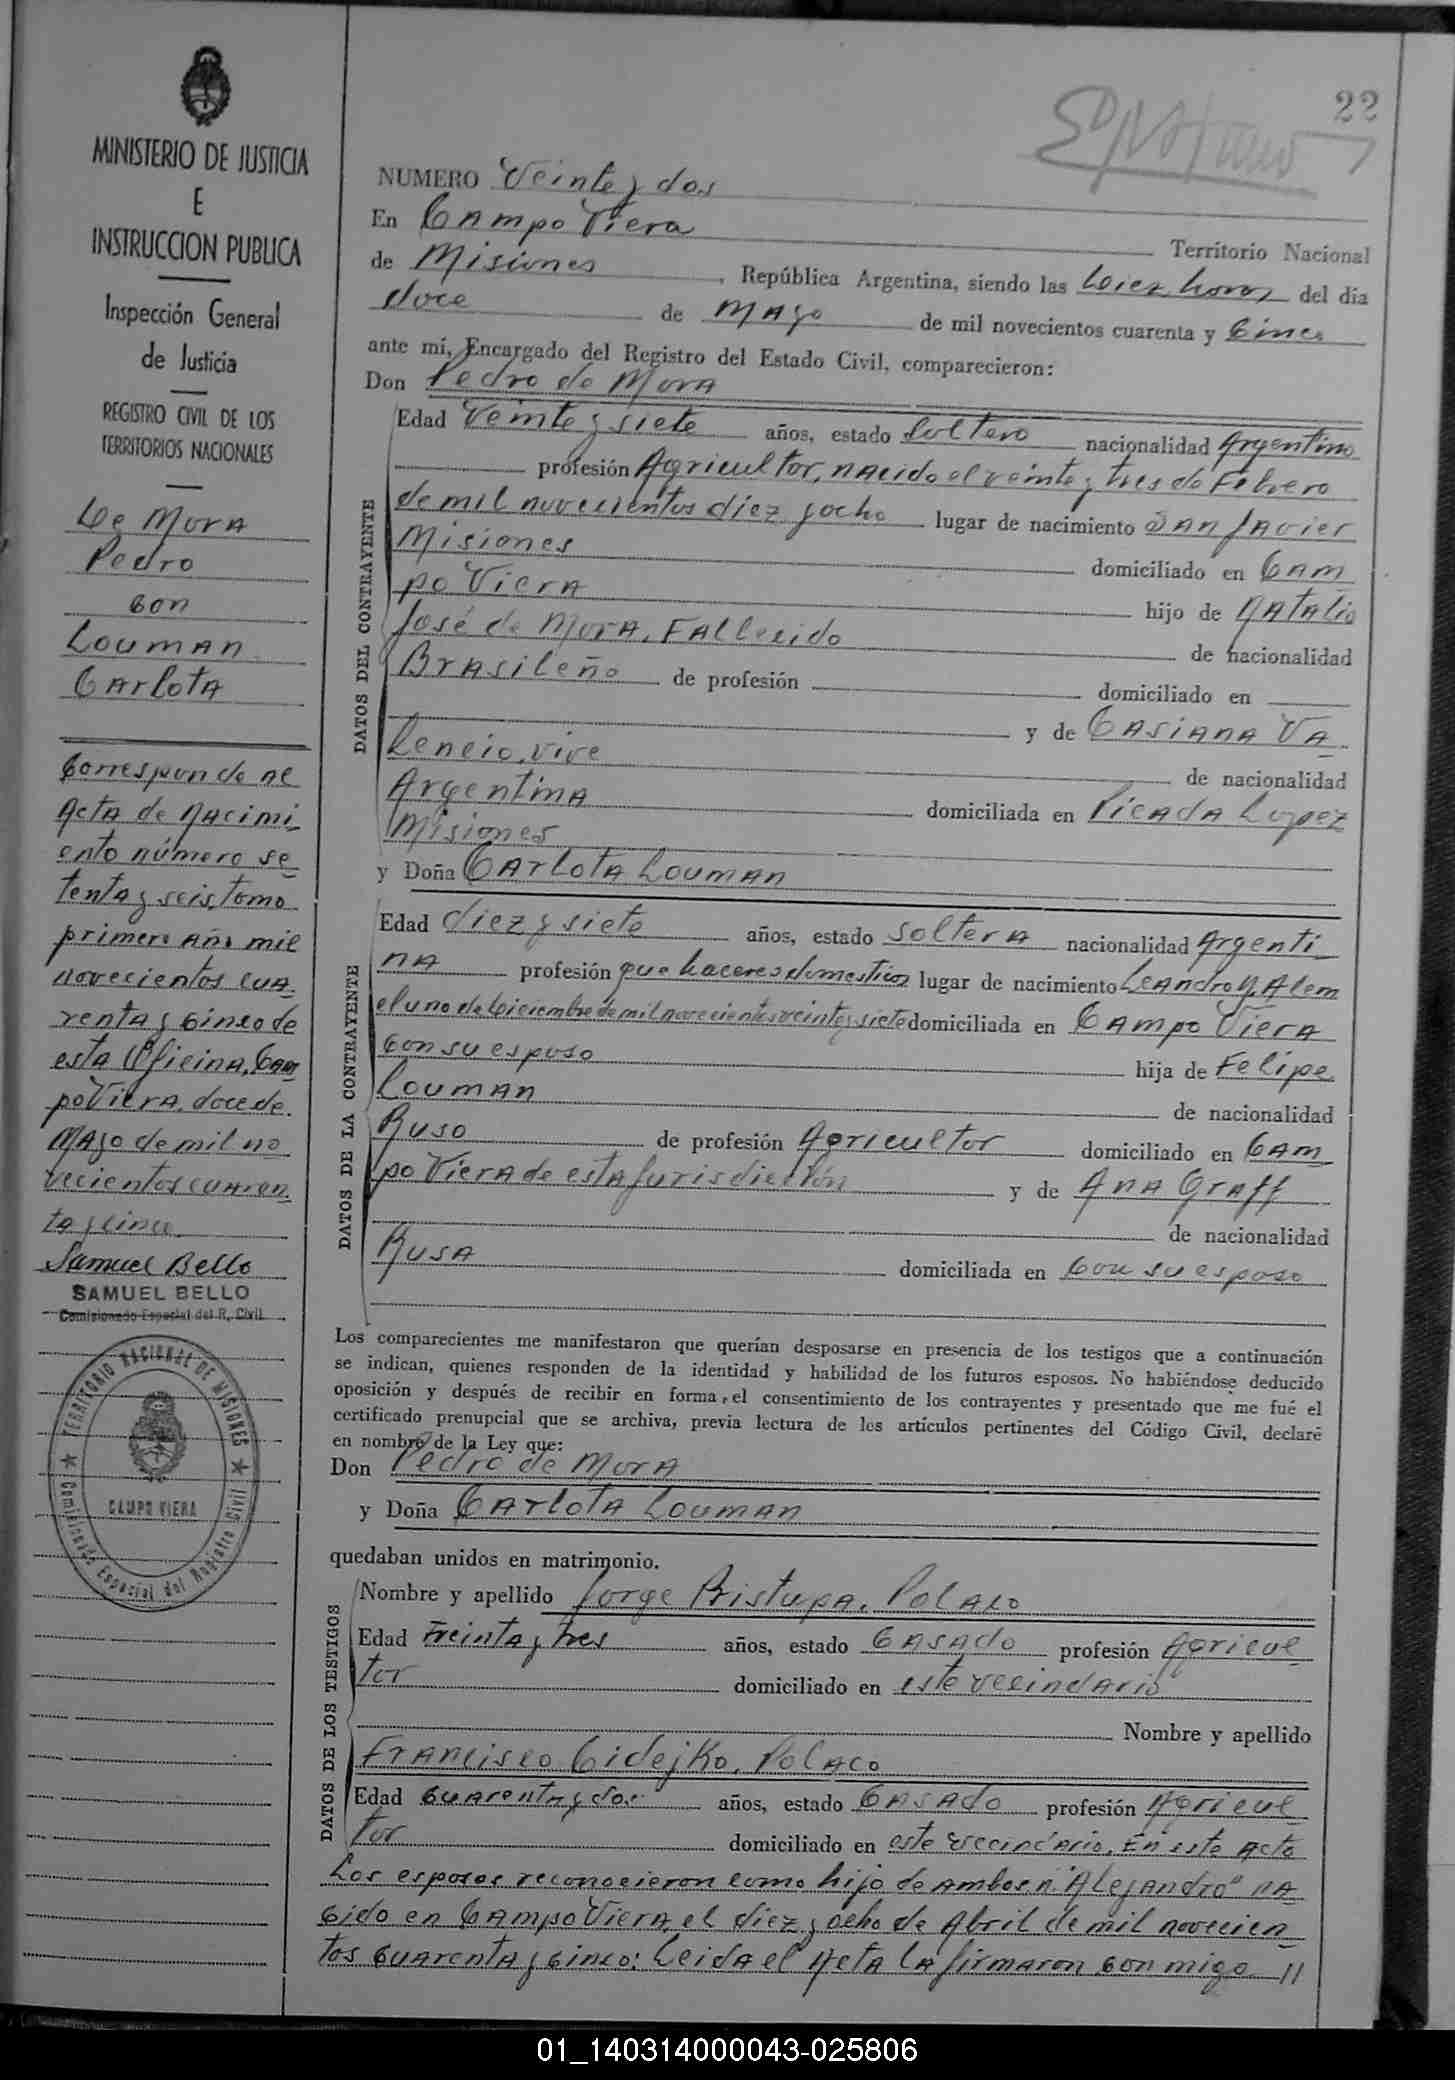 22
MINISTERIO DE JUSTICIA
E
INSTRUCCION PUBLICA
Inspección General
de Justicia
REGISTRO CIVIL DE LOS
TERRITORIOS NACIONALES
De Mora
Pedro
con
Louman
Carlota
Corresponde al
Acta de Nacimi
ento número se
tenta y seis, tomo
primero año mil
novecientos cua
renta y cinco de
esta Oficina, Cam
po Viera, doce de
Mayo de mil no
vecientos cuaren
ta y cinco.
Samuel Bello
SAMUEL BELLO
Comisionado Especial del R. Civil
TERRITORIO NACIONAL DE MISIONES
CAMPO VIERA
Comisionado Especial del Registro Civil
NUMERO Veinte y dos
En Campo Viera Territorio Nacional
de Misiones, República Argentina, siendo las Diez horas del día
doce de Mayo de mil novecientos cuarenta y Cinco
ante mí, Encargado del Registro del Estado Civil, comparecieron:
Don Pedro de Mora
DATOS DEL CONTRAYENTE
Edad Veinte y siete años, estado soltero nacionalidad Argentino
profesión Agricultor, nacido el veinte y tres de Febrero
de mil novecientos diez y ocho lugar de nacimiento San Javier
Misiones domiciliado en Cam
po Viera hijo de Natalio
José de Mora, Fallecido de nacionalidad
Brasileño de profesión domiciliado en
y de Casiana Va
lencio, vive de nacionalidad
Argentina domiciliada en Picada Lopez
Misiones
y Doña Carlota Louman
DATOS DE LA CONTRAYENTE
Edad diez y siete años, estado soltera nacionalidad Argenti
na profesión que haceres domesticos lugar de nacimiento Leandro N. Alem
el uno de Diciembre de mil novecientos veinte y siete domiciliada en Campo Viera
con su esposo hija de Felipe
Louman de nacionalidad
Ruso de profesión Agricultor domiciliado en Cam
po Viera de esta Jurisdicción y de Ana Graff
de nacionalidad
Rusa domiciliada en con su esposo
Los comparecientes me manifestaron que querían desposarse en presencia de los testigos que a continuación
se indican, quienes responden de la identidad y habilidad de los futuros esposos. No habiéndose deducido
oposición y después de recibir en forma, el consentimiento de los contrayentes y presentado que me fué el
certificado prenupcial que se archiva, previa lectura de los artículos pertinentes del Código Civil, declaré
en nombre de la Ley que:
Don Pedro de Mora
y Doña Carlota Louman
quedaban unidos en matrimonio.
DATOS DE LOS TESTIGOS
Nombre y apellido Jorge Ristupa, Polaco
Edad Treinta y tres años, estado Casado profesión Agricul
tor domiciliado en este vecindario
Nombre y apellido
Francisco Cidejko, Polaco
Edad cuarenta y dos años, estado Casado profesión Agricul
tor domiciliado en este vecindario. En este acto
Los esposos reconocieron como hijo de ambos, a: "Alejandro" na
cido en Campo Viera, el diez y ocho de Abril de mil novecien
tos cuarenta y cinco: Leida el Acta la firmaron conmigo //
01_140314000043-025806